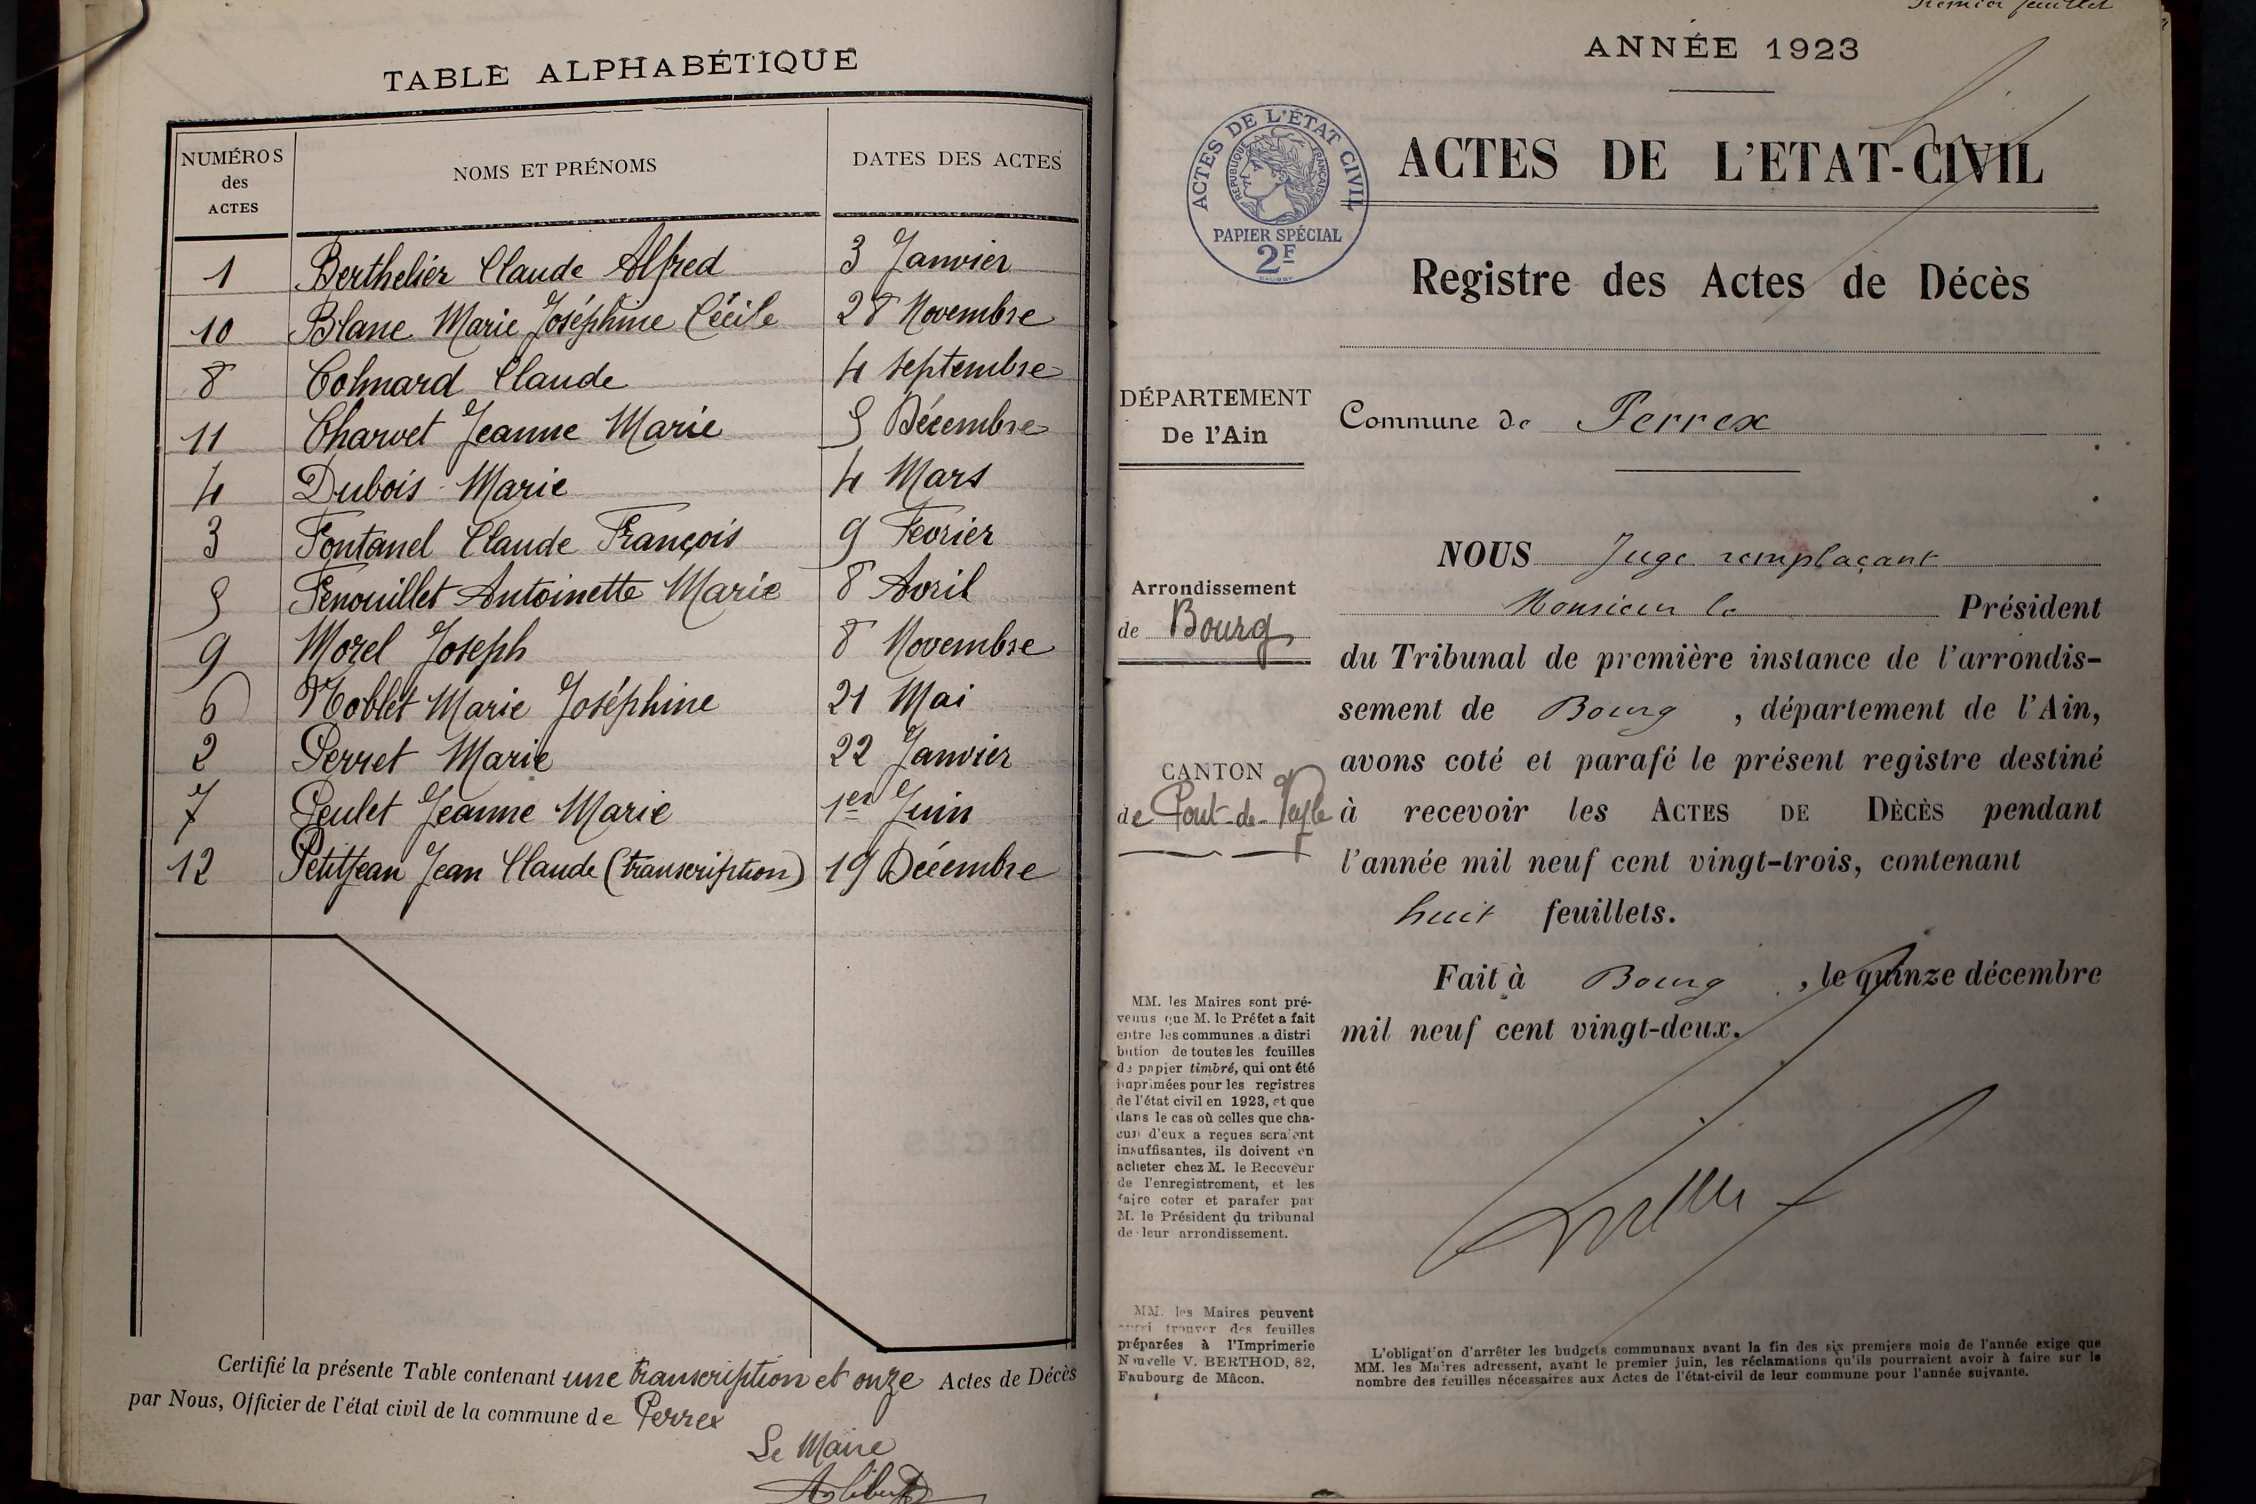 TABLE ALPHABÉTIQUE
NUMÉROS des ACTES NOMS ET PRÉNOMS DATES DES ACTES
1 Berthelier Claude Alfred 3 Janvier
10 Blanc Marie Joséphine Cécile 28 Novembre
8 Colmard Claude 4 septembre
11 Charvet Jeanne Marie 5 Décembre
4 Dubois Marie 4 Mars
3 Fontanel Claude François 9 Fevrier
5 Fenouillet Antoinette Marie 8 Avril
9 Morel Joseph 8 Novembre
6 Noblet Marie Joséphine 21 Mai
2 Perret Marie 22 Janvier
7 Peulet Jeanne Marie 1er Juin
12 Petitjean Jean Claude (transcription) 19 Décembre
Certifié la présente Table contenant une transcription et onze Actes de Décès
par Nous, Officier de l'état civil de la commune de Perrex
Le Maire
Premier feuillet
ANNÉE 1923
ACTES DE L'ÉTAT CIVIL
RÉPUBLIQUE FRANÇAISE
PAPIER SPÉCIAL
2F
ACTES DE L'ETAT-CIVIL
Registre des Actes de Décès
DÉPARTEMENT
De l'Ain
Commune de Perrex
Arrondissement
de Bourg
CANTON
de Pont-de-Veyle
NOUS Juge remplaçant
Monsieur le Président
du Tribunal de première instance de l'arrondis-
sement de Bourg, département de l'Ain,
avons coté et parafé le présent registre destiné
à recevoir les ACTES DE DÉCÈS pendant
l'année mil neuf cent vingt-trois, contenant
huit feuillets.
Fait à Bourg, le quinze décembre
mil neuf cent vingt-deux.
MM. les Maires sont pré-
venus que M. le Préfet a fait
entre les communes a distri
bution de toutes les feuilles
de papier timbré, qui ont été
imprimées pour les registres
de l'état civil en 1923, et que
dans le cas où celles que cha-
cun d'eux a reçues seraient
insuffisantes, ils doivent en
acheter chez M. le Receveur
de l'enregistrement, et les
faire coter et parafer par
M. le Président du tribunal
de leur arrondissement.
MM. les Maires peuvent
aussi trouver des feuilles
préparées à l'Imprimerie
Nouvelle V. BERTHOD, 82,
Faubourg de Mâcon.
L'obligation d'arrêter les budgets communaux avant la fin des six premiers mois de l'année exige que
MM. les Maires adressent, avant le premier juin, les réclamations qu'ils pourraient avoir à faire sur le
nombre des feuilles nécessaires aux Actes de l'état-civil de leur commune pour l'année suivante.